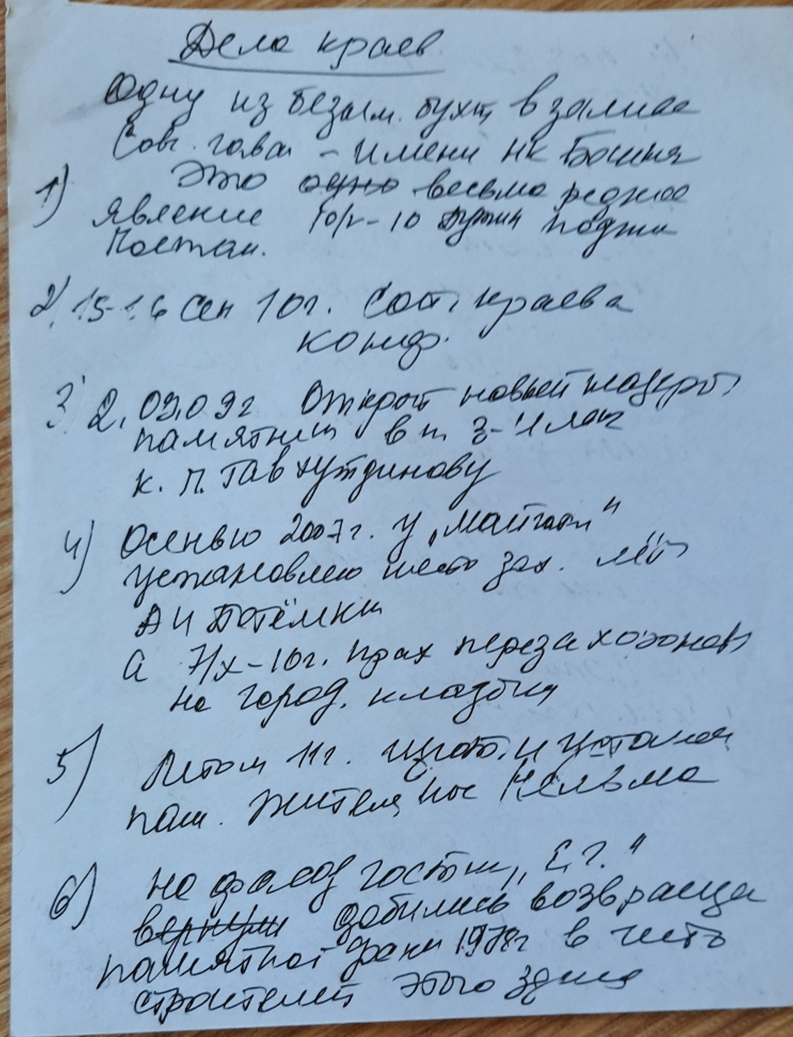 Дела краев
Одну из безым. бухт в заливе
Сов. гава – имени НК Бошня
1) Это одно весьма редкое
явление 10/V-10 подпи
Постан.
2) 15-16 сен 10г. Сост. краева
конф.
3) 2.09.09г Открыт новый
памятник в п. З-Илак
К. П. Гавхутдинову
4) Осенью 2007г. у „Майгатки"
установлено место зах. лёт
А И Потёмки
а 7/X-10г. прах перезахоронен
на город. кладбищ
5) Летом 11г. изгот. и устанав
пам. жителя пос Нельма
6) На фасад гостин „С.Г."
вернули добились возвраще
памятной 1978г в честь
строителей этого здния